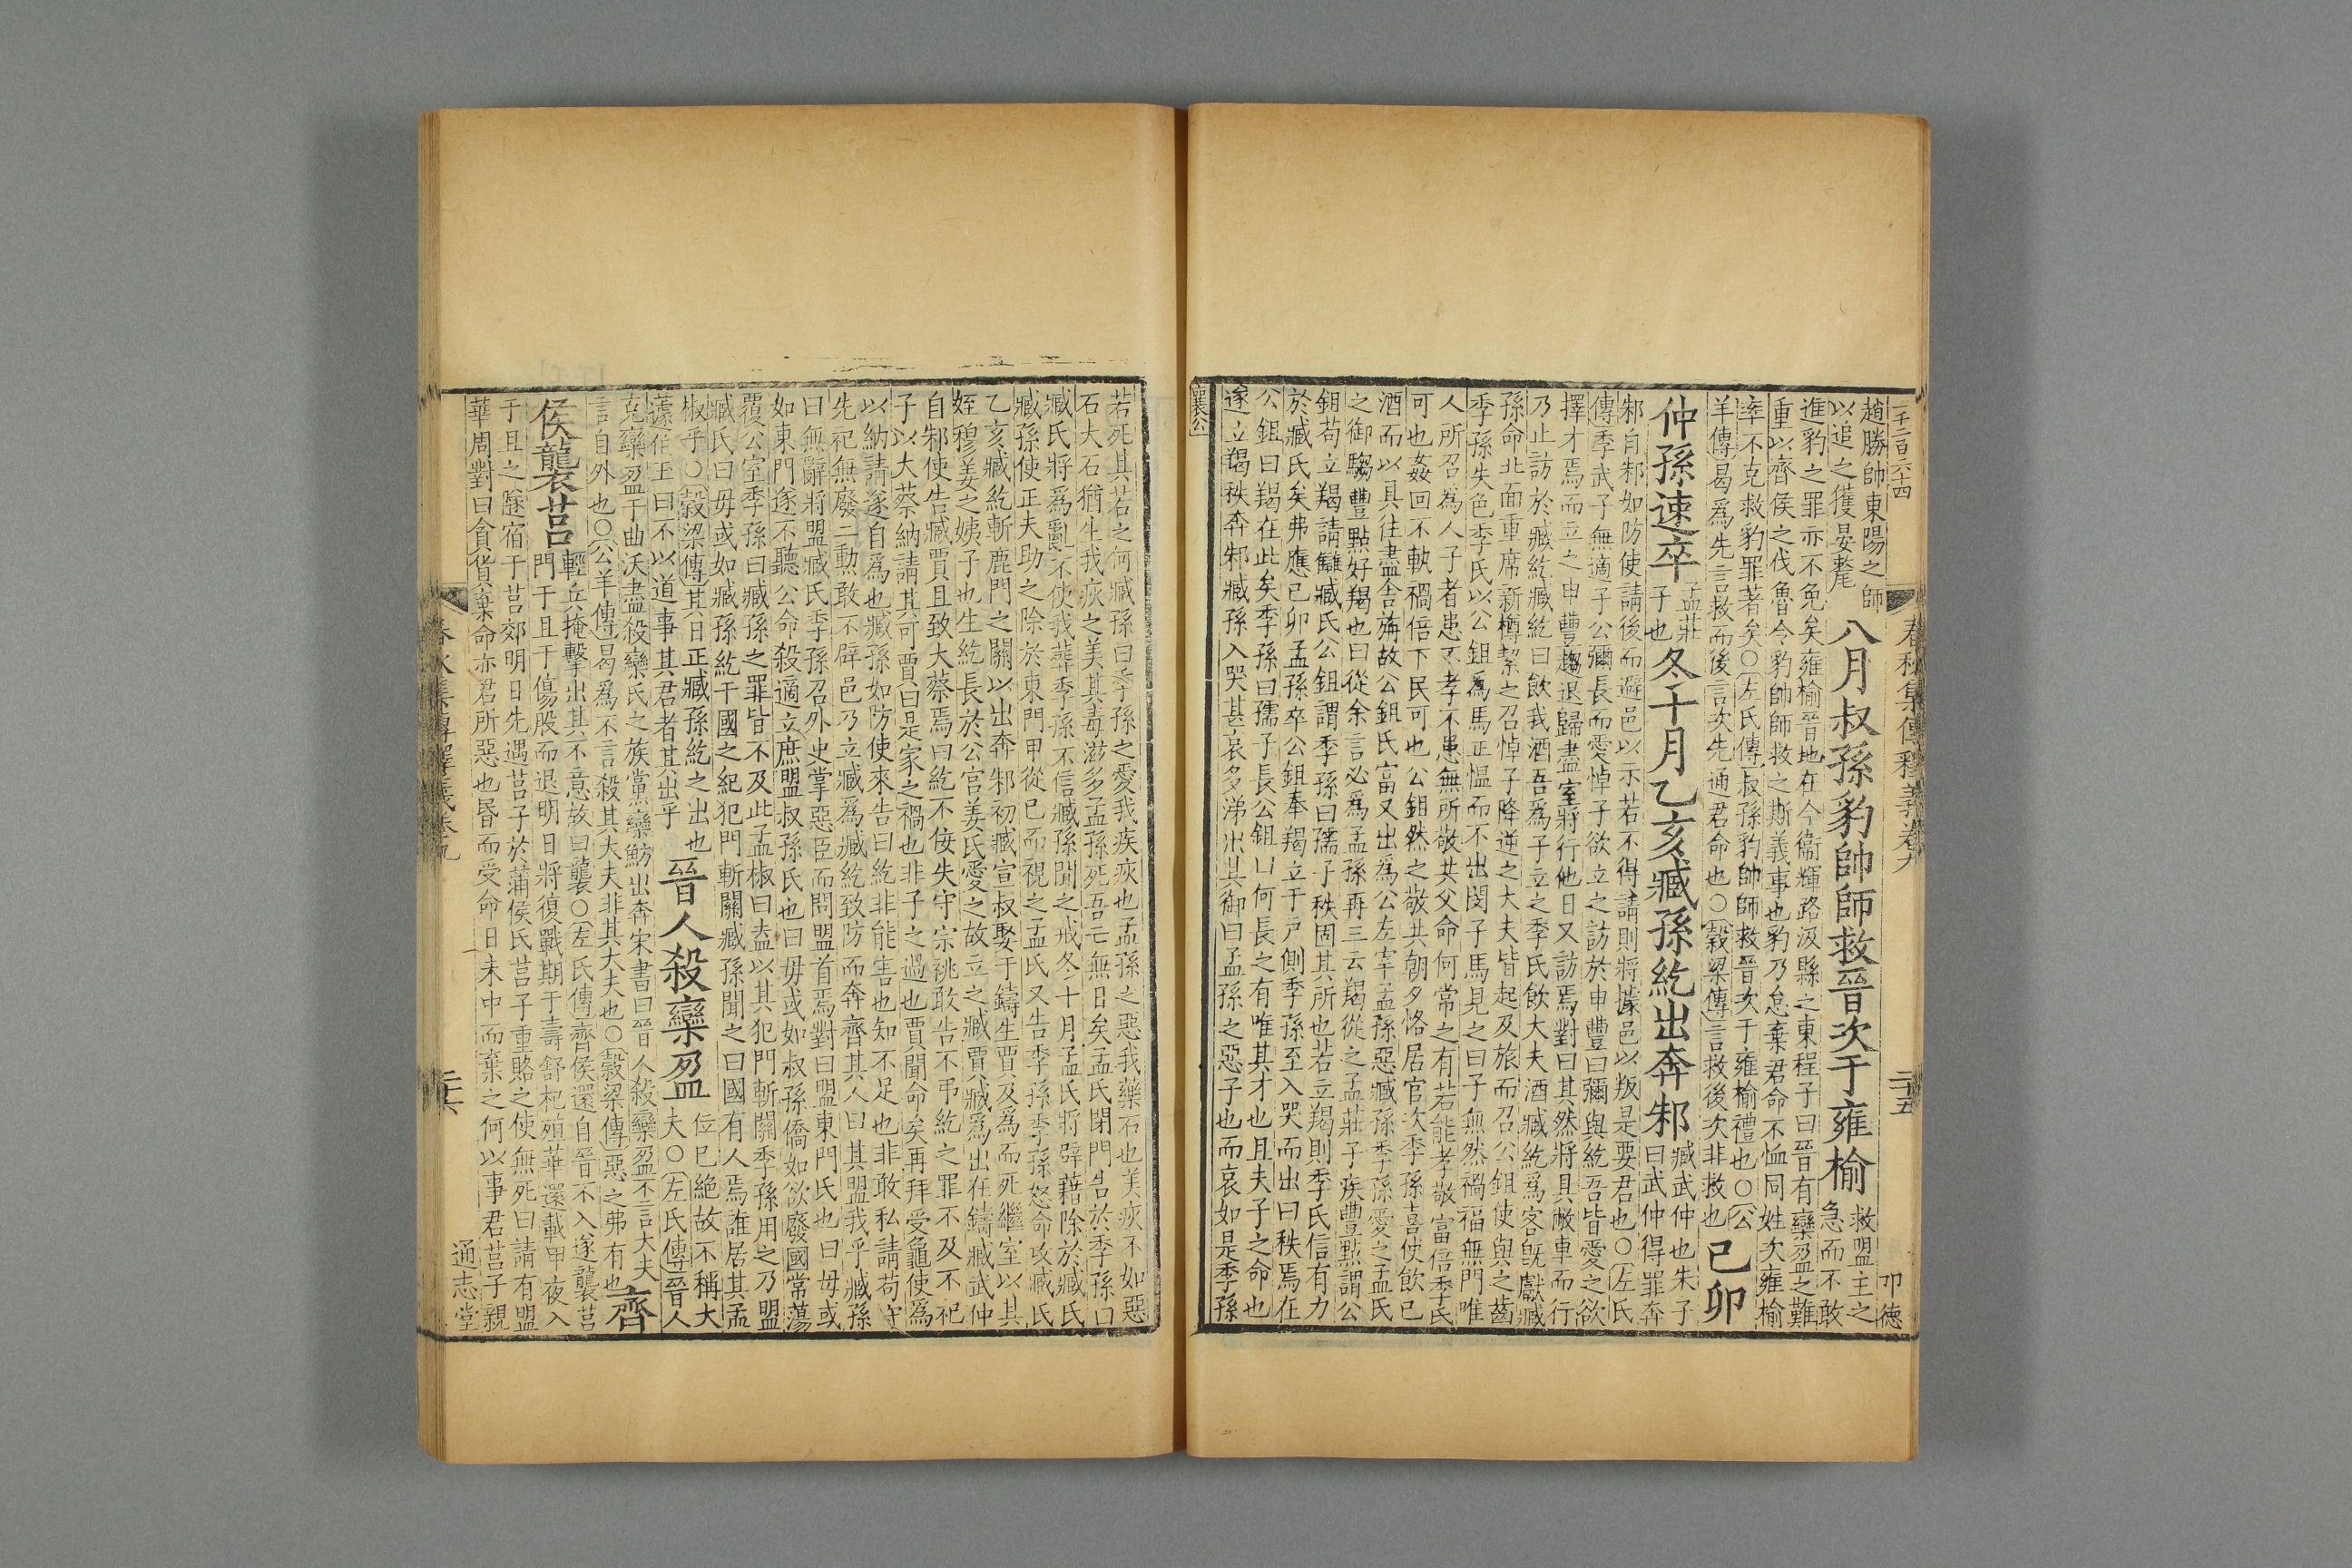 一千二百六十四　春秋集傳釋義卷九　二十五　叩德
趙勝帥東陽之師
以追之獲晏氂
八月叔孫豹帥師救晉次于雍榆
救盟主之
急而不敢
進豹之罪亦不免矣雍榆晉地在今衞輝路汲縣之東程子曰晉有欒盈之難
重以齊侯之伐魯令豹帥師救之斯義事也豹乃怠棄君命不恤同姓次雍榆
率不克救豹罪著矣○左氏傳叔孫豹帥師救晉次于雍榆禮也○公
羊傳曷爲先言救而後言次先通君命也○穀梁傳言救後次非救也
己卯
仲孫速卒
孟莊
子也
冬十月乙亥臧孫紇出奔邾
臧武仲也朱子
曰武仲得罪奔
邾自邾如防使請後而避邑以示若不得請則將據邑以叛是要君也○左氏
傳季武子無適子公彌長而愛悼子欲立之訪於申豐曰彌與紇吾皆愛之欲
擇才焉而立之申豐趨退歸盡室將行他日又訪焉對曰其然將具敝車而行
乃止訪於臧紇臧紇曰飲我酒吾爲子立之季氏飲大夫酒臧紇爲客旣獻臧
孫命北面重席新樽絜之召悼子降逆之大夫皆起及旅而召公鉏使與之齒
季孫失色季氏以公鉏爲馬正慍而不出閔子馬見之曰子無然禍福無門唯
人所召爲人子者患不孝不患無所敬共父命何常之有若能孝敬富倍季氏
可也姦回不軌禍倍下民可也公鉏然之敬共朝夕恪居官次季孫喜使飲已
酒而以具往盡舍旃故公鉏氏富又出爲公左宰孟孫惡臧孫季孫愛之孟氏
之御騶豐點好羯也曰從余言必爲孟孫再三云羯從之孟莊子疾豐點謂公
鉏苟立羯請讎臧氏公鉏謂季孫曰孺子秩固其所也若立羯則季氏信有力
於臧氏矣弗應己卯孟孫卒公鉏奉羯立于戶側季孫至入哭而出曰秩焉在
公鉏曰羯在此矣季孫曰孺子長公鉏曰何長之有唯其才也且夫子之命也
遂立羯秩奔邾臧孫入哭甚哀多涕出其御曰孟孫之惡子也而哀如是季孫
襄公
若死其若之何臧孫曰季孫之愛我疾疢也孟孫之惡我藥石也美疢不如惡
石夫石猶生我疢之美其毒滋多孟孫死吾亡無日矣孟氏閉門告於季孫曰
臧氏將爲亂不使我葬季孫不信臧孫聞之戒冬十月孟氏將辟藉除於臧氏
臧孫使正夫助之除於東門甲從已而視之孟氏又告季孫季孫怒命攻臧氏
乙亥臧紇斬鹿門之關以出奔邾初臧宣叔娶于鑄生賈及爲而死繼室以其
姪穆姜之姨子也生紇長於公宮姜氏愛之故立之臧賈臧爲出在鑄臧武仲
自邾使告臧賈且致大蔡焉曰紇不佞失守宗祧敢告不弔紇之罪不及不祀
子以大蔡納請其可賈曰是家之禍也非子之過也賈聞命矣再拜受龜使爲
以納請遂自爲也臧孫如防使來告曰紇非能害也知不足也非敢私請苟守
先祀無廢二勲敢不辟邑乃立臧爲臧紇致防而奔齊其人曰其盟我乎臧孫
曰無辭將盟臧氏季孫召外史掌惡臣而問盟首焉對曰盟東門氏也曰毋或
如東門遂不聽公命殺適立庶盟叔孫氏也曰毋或如叔孫僑如欲廢國常蕩
覆公室季孫曰臧孫之罪皆不及此孟椒曰盍以其犯門斬關季孫用之乃盟
臧氏曰毋或如臧孫紇干國之紀犯門斬關臧孫聞之曰國有人焉誰居其孟
椒乎○穀梁傳其日正臧孫紇之出也
蘧伯玉曰不以道事其君者其出乎
晉人殺欒盈
位已絕故不稱大
夫○左氏傳晉人
克欒盈于曲沃盡殺欒氏之族黨欒魴出奔宋書曰晉人殺欒盈不言大夫
言自外也○公羊傳曷爲不言殺其大夫非其大夫也○穀梁傳惡之弗有也
齊
侯襲莒
輕兵掩擊出其不意故曰襲○左氏傳齊侯還自晉不入遂襲莒
門于且于傷股而退明日將復戰期于壽舒杞殖華還載甲夜入
于且之隧宿于莒郊明日先遇莒子於蒲侯氏莒子重賂之使無死曰請有盟
華周對曰貪貨棄命亦君所惡也昏而受命日未中而棄之何以事君莒子親
春秋集傳釋義卷九　二十六　通志堂